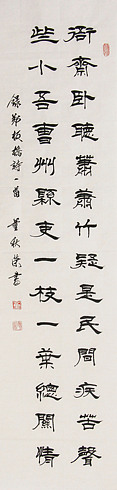 衙齋卧聽蕭蕭竹疑是民間疾苦聲
些小吾曹州縣吏一枝一葉總關情
錄鄭板橋詩一首 董秋榮書